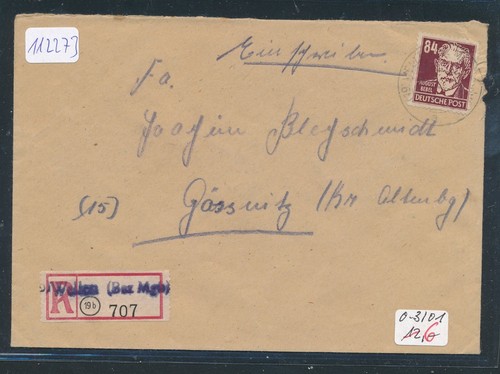 112273
Einschreiben
84
AUGUST
BEBEL
DEUTSCHE POST
Fa.
Joachim Bleyschmidt
(15) Gössnitz (Kr Altenbg)
Wellen (Bez Mgb)
R 19b 707
0-3101
12,
6